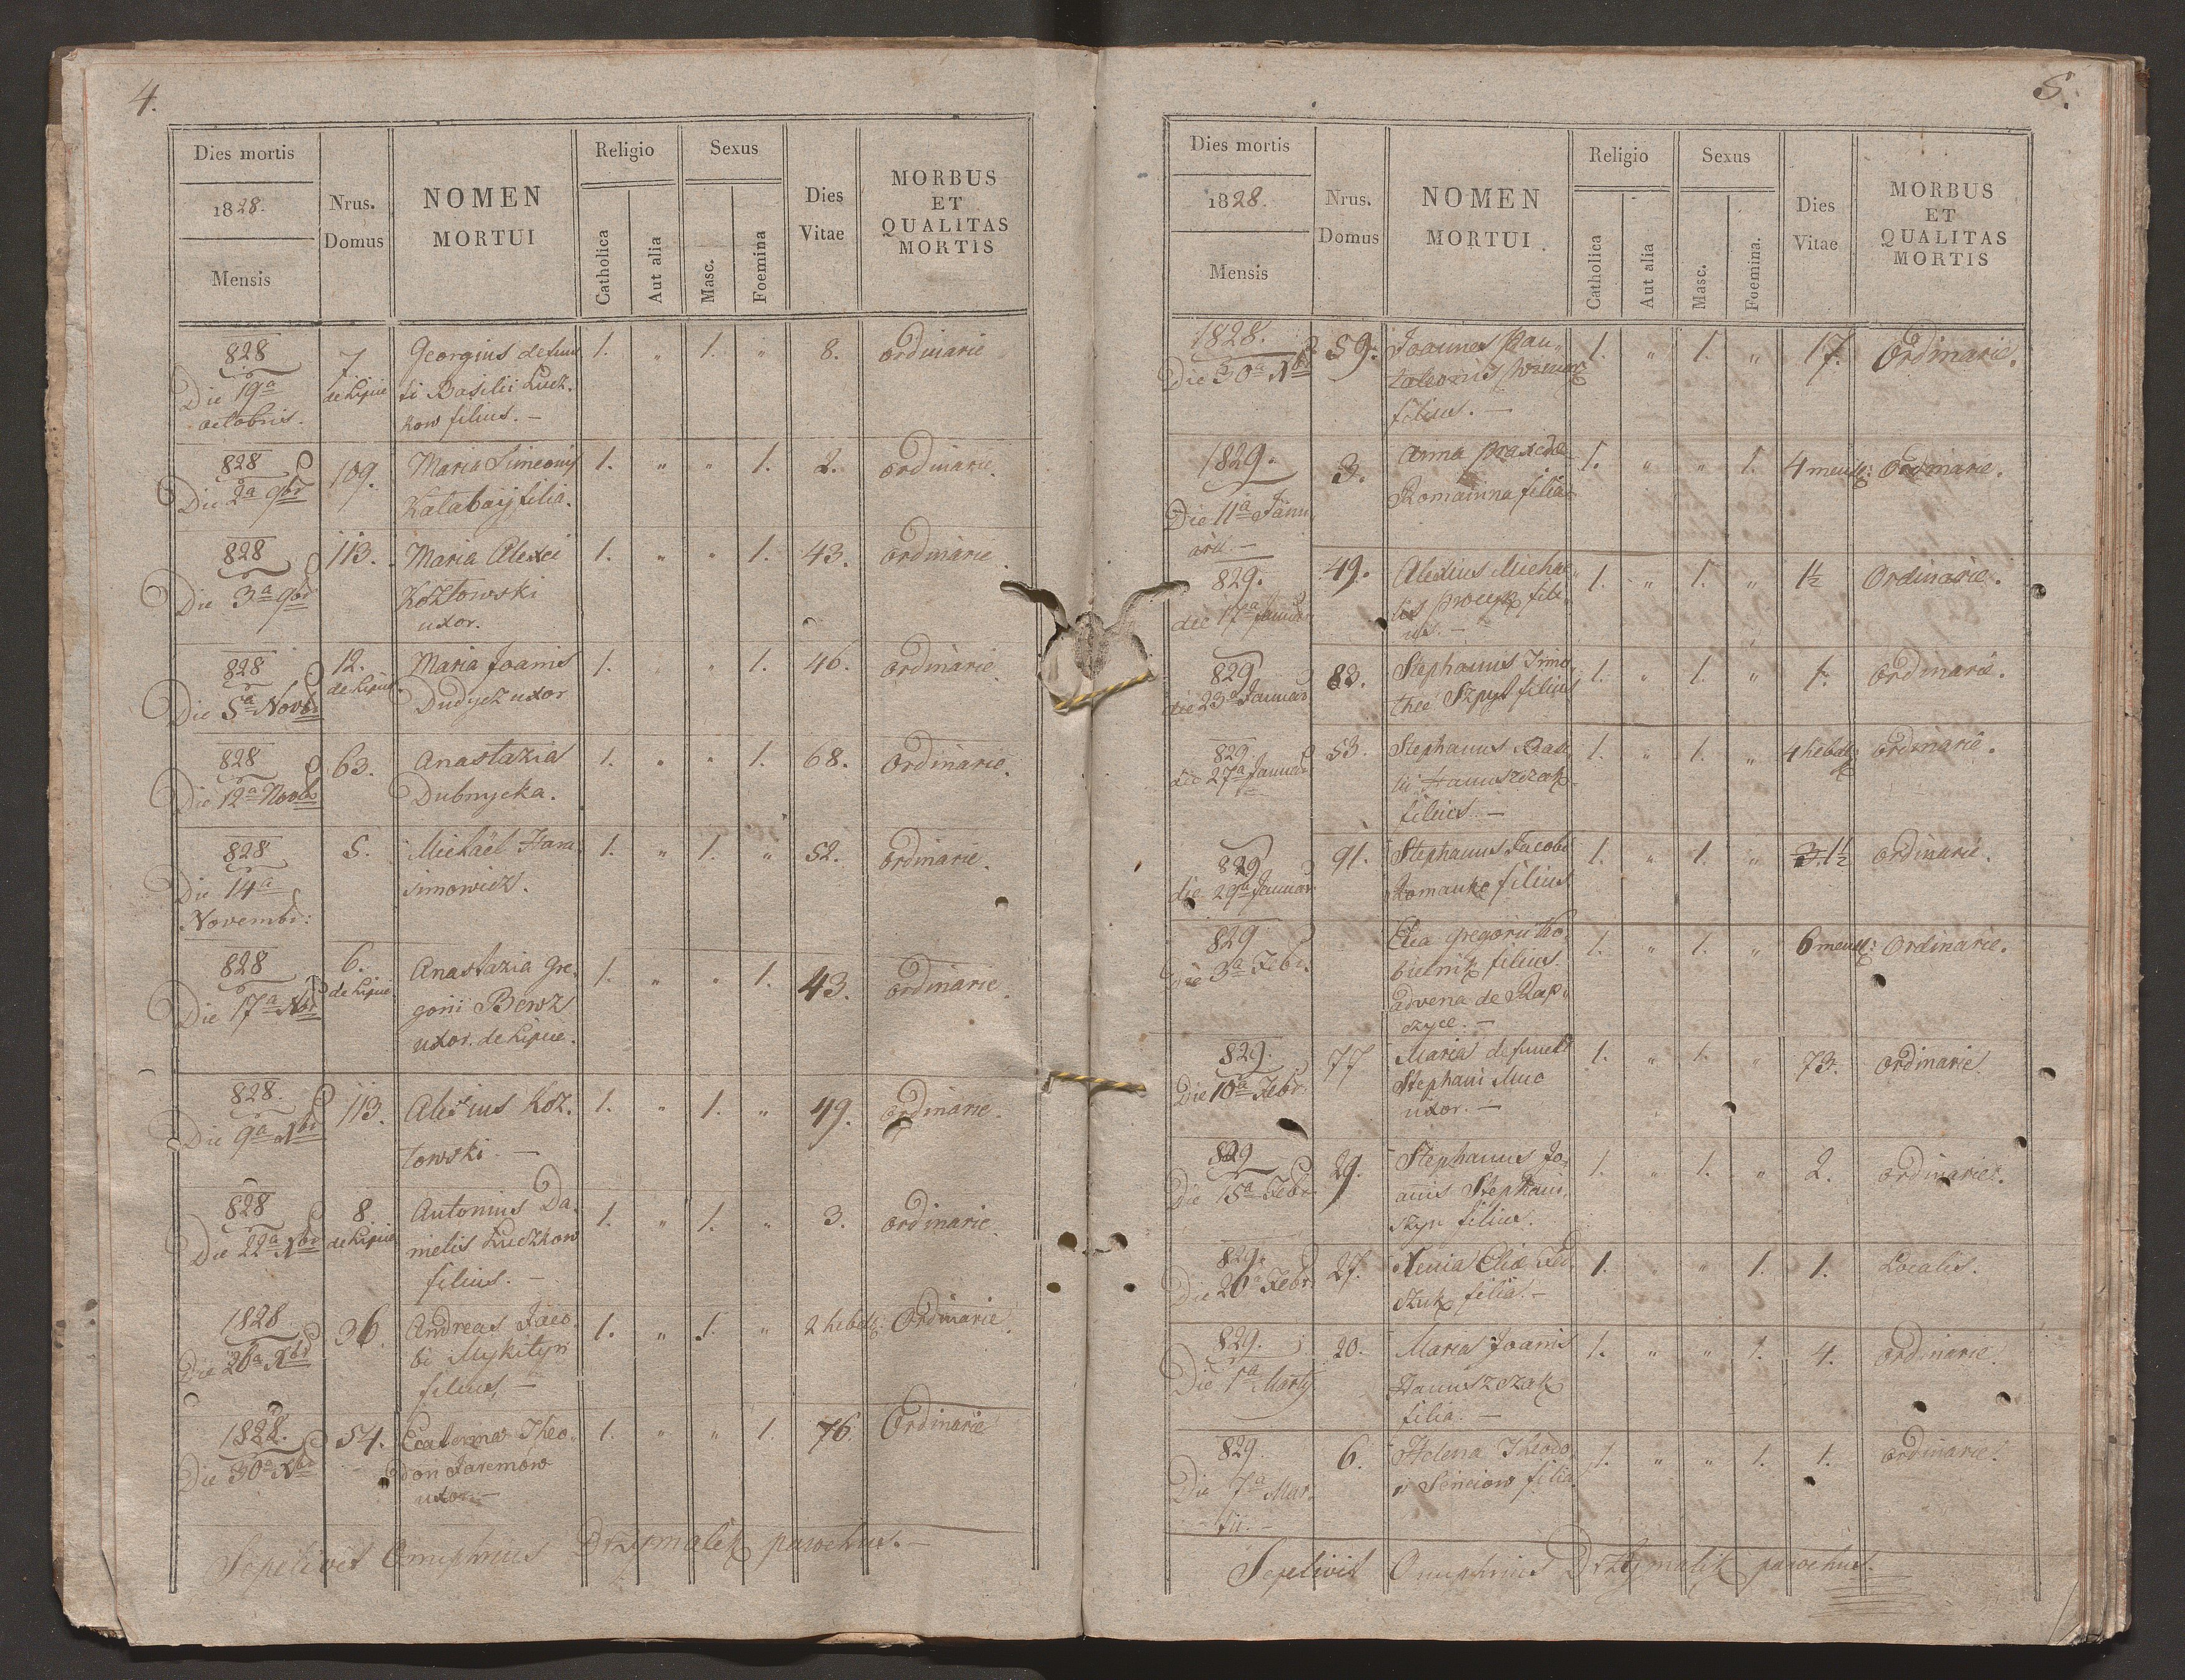 4.
Dies mortis
1828.
Mensis
Nrus.
Domus
NOMEN
MORTUI
Religio
Catholica
Aut alia
Sexus
Masc.
Foemina
Dies
Vitae
MORBUS
ET
QUALITAS
MORTIS
828 7 Georgius defunc 1. " 1. " 8. ordinarie
Die 19a de Lipie ti Basilii Lucz.
octobris. kow filius. —
828 109. Maria Simeonis 1. " " 1. 2. ordinarie.
Die 2a 9bris Kalabay filia.
828 113. Maria Alexei 1. " " 1. 43. ordinarie.
Die 3a 9bris Kozłowski
uxor.
828 12. Maria Joanis 1. " " 1. 46. ordinarie
Die 5a Novbr de Lipie Dudycz uxor
828 63. Anastazia 1. " " 1. 68. ordinarie.
Die 12a Novbr Dubnycka.
828 5. Michaël Hara 1. " 1. " 52. ordinarie.
Die 14a simowicz.
Novembr:
828 6. Anastazia Gre 1. " " 1. 43. ordinarie.
Die 17a Nbr de Lipie gorii Bewz
uxor. de Lipie.
828. 113. Alexius Koz. 1. " 1. " 49. ordinarie.
Die 9a Xbr łowski. —
828 8 Antonius Da. 1. " 1. " 3. ordinarie
Die 22a Xbr de Lipie nielis Luczkow
filius. —
1828 36. Andreas Jaco. 1. " 1. " 2 hebd: Ordinarie.
Die 26a Xbr bi Mykityn
filius, —
1828. 54. Ecaterina Theo. 1. " " 1. 76. Ordinarie
Die 30a Xbr dori Jaremow
uxor. —
Sepelivit Onuphrius Drzymalik parochus. —
5.
Dies mortis
1828.
Mensis
Nrus.
Domus
NOMEN
MORTUI.
Religio
Catholica
Aut alia
Sexus
Masc.
Foemina.
Dies
Vitae
MORBUS
ET
QUALITAS
MORTIS
1828. 59. Joannes Pan, 1. " 1. " 17. Ordinarie.
Die 30a Xbr taleonis
filius. —
1829. 3. Anna Praxeda 1. " " 1. 4 mens: ordinarie.
Die 11a Janu Romanina filia
arii. —
829. 49. Alexius Micha 1. " 1. " 1½ Ordinarie.
die 17a Januar lis filii
us. —
829 83. Stephanus Timo, 1. " 1. " 1. ordinarie.
die 23a Januar thei Szpyt filius
829 53. Stephanus Basi 1. " 1. " 4 hebd: ordinarie.
die 27a Januar lii Hanuszczak
filius. —
829 91. Stephanus Jacobi 1. " 1. " 3. 1½ ordinarie.
die 29a Januar Romanko filius
829 Elia Gregorii Ko 1. " 1. " 6 mens: Ordinarie.
Die 3a Febr. bielnik filius.
advena de Rap.
czyce. —
829. 77 Maria defuncti 1. " 1. " 73. ordinarie.
Die 10a Febr. Stephani Muc
uxor. —
829 29. Stephanus Jo 1. " 1. " 2. ordinarie.
Die 15a Febr. anis Stephani,
szyn filius.
829. 27. Xenia Eliæ Fed, 1. " " 1. 1. Localis.
Die 20a Febr. czuk filia. —
829. 20. Maria Joanis 1. " " 1. 4. Ordinarie.
Die 1a Martij Hanuszczak
filia. —
829. 6. Helena Theodo, 1. " " 1. 1. ordinarie.
Die 7a Mar. ri Senciow filia
tii. —
Sepelivit Onuphrius Drzymalik parochus.